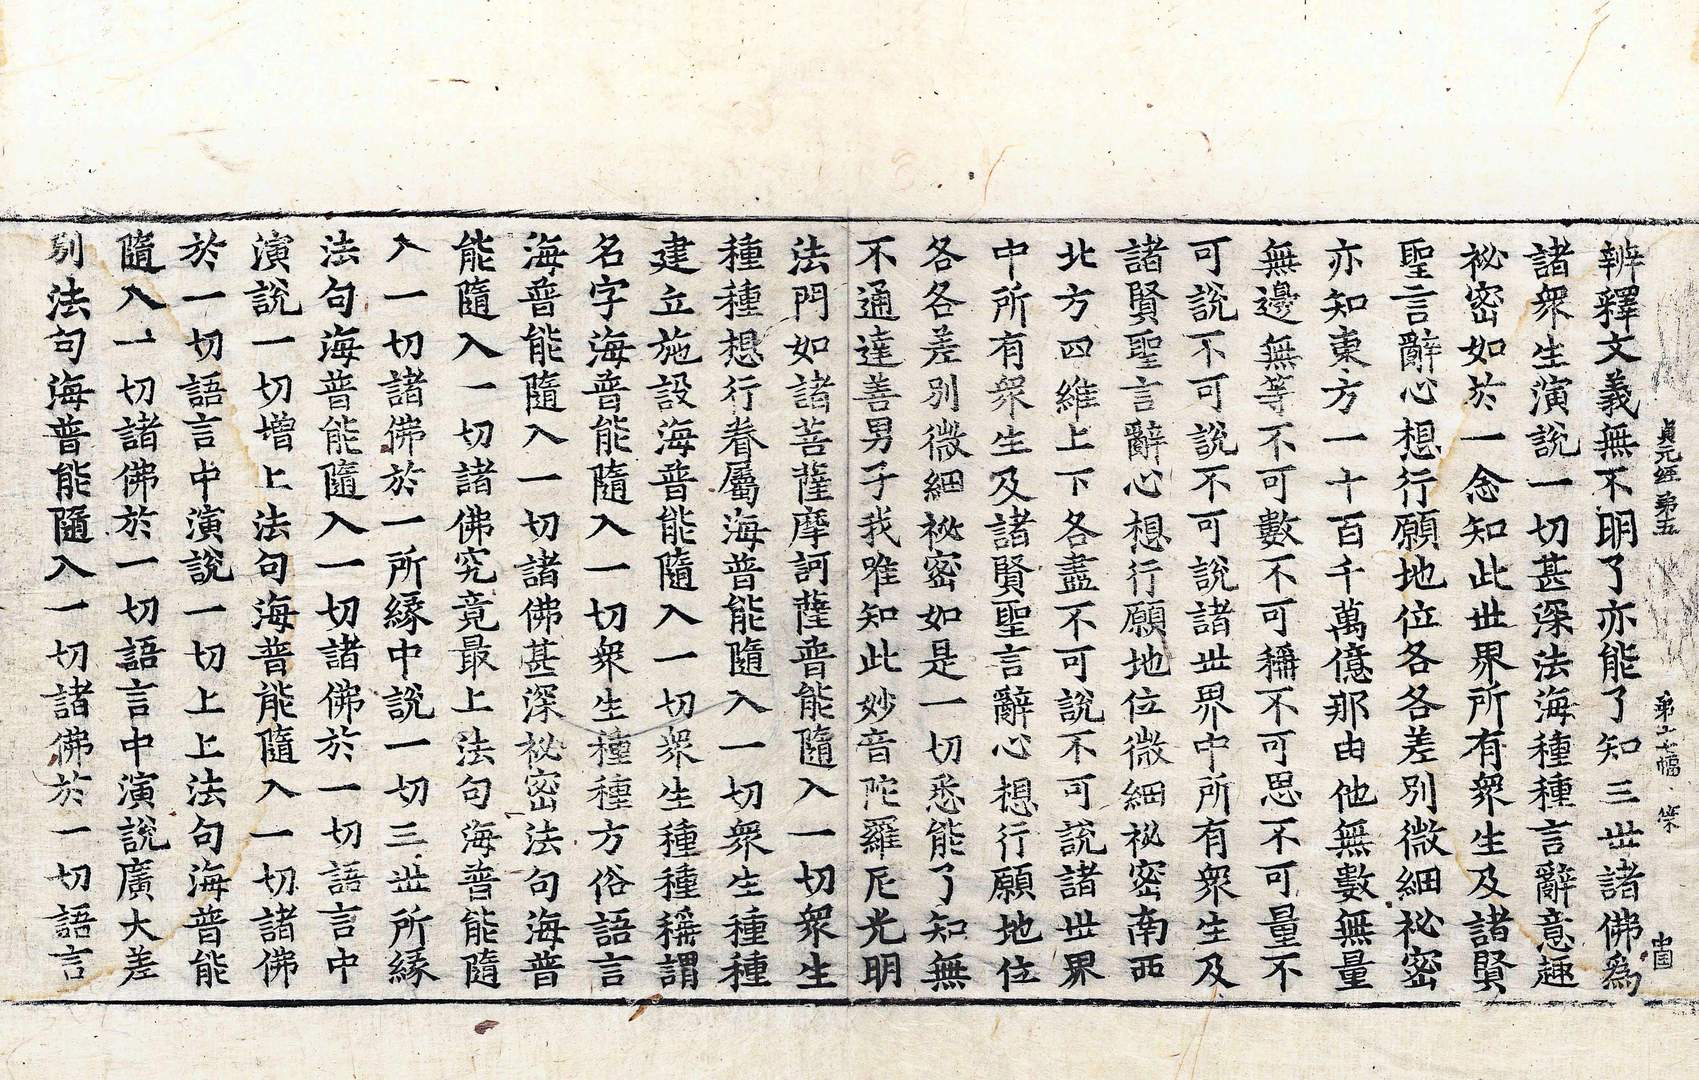 貞元經第五
辨釋文義無不明了亦能了知三世諸佛為
諸衆生演說一切甚深法海種種言辭意趣
祕密如於一念知此世界所有衆生及諸賢
聖言辭心想行願地位各各差別微細祕密
亦知東方一十百千萬億那由他無數無量
無邊無等不可數不可稱不可思不可量不
可說不可說不可說諸世界中所有衆生及
諸賢聖言辭心想行願地位微細祕密南西
北方四維上下各盡不可說不可說諸世界
中所有衆生及諸賢聖言辭心想行願地位
各各差別微細祕密如是一切悉能了知無
不通達善男子我唯知此妙音陀羅尼光明
法門如諸菩薩摩訶薩普能隨入一切衆生
種種想行眷屬海普能隨入一切衆生種種
建立施設海普能隨入一切衆生種種稱謂
名字海普能隨入一切衆生種種方俗語言
海普能隨入一切諸佛甚深祕密法句海普
能隨入一切諸佛究竟最上法句海普能隨
入一切諸佛於一所緣中說一切三世所緣
法句海普能隨入一切諸佛於一切語言中
演說一切增上法句海普能隨入一切諸佛
於一切語言中演說一切上上法句海普能
隨入一切諸佛於一切語言中演說廣大差
別法句海普能隨入一切諸佛於一切語言